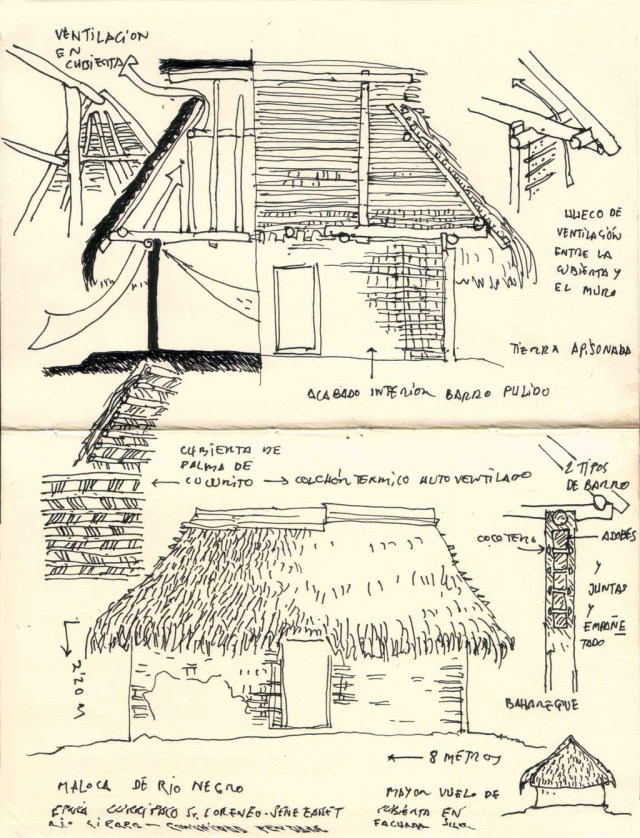 VENTILACION
EN
CUBIERTA
HUECO DE
VENTILACIÓN
ENTRE LA
CUBIERTA Y
EL MURO
TIERRA APISONADA
ACABADO INTERIOR BARRO PULIDO
CUBIERTA DE
PALMA DE
CUCURITO
COLCHÓN TERMICO AUTO VENTILADO
2 TIPOS
DE BARRO
ADOBES
Y
JUNTAS
Y
EMPAÑE
TADO
BAHAREQUE
2'20 M
8 METROS
MALOCA DE RIO NEGRO
MAYOR VUELO DE
CUBIERTA EN
FACHADA SUR
RIO